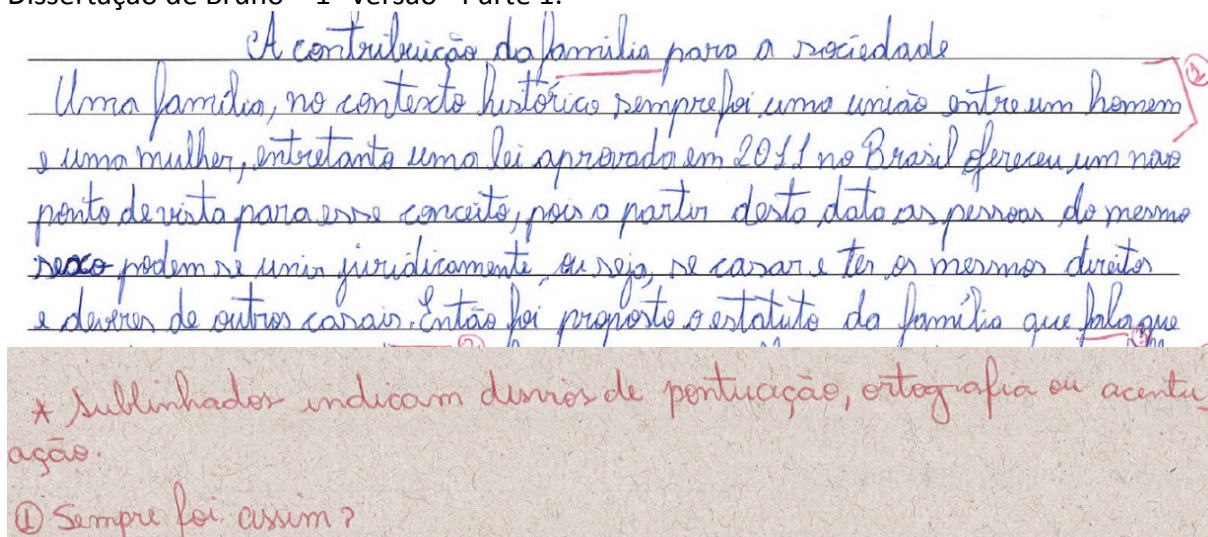 Dissertação de Bruno – 1ª versão - Parte 1:
A contribuição da familia para a sociedade
Uma família, no contexto histórico sempre foi uma união entre um homem
e uma mulher, entretanto uma lei aprovada em 2011 no Brasil ofereceu um novo
ponto de vista para esse conceito, pois a partir desta data as pessoas do mesmo
sexo podem se unir juridicamente, ou seja, se casar e ter os mesmos direitos
e deveres de outros casais. Então foi proposto o estatuto da família que fala que
* Sublinhados indicam desvios de pontuação, ortografia ou acentu_
ação.
① Sempre foi assim?